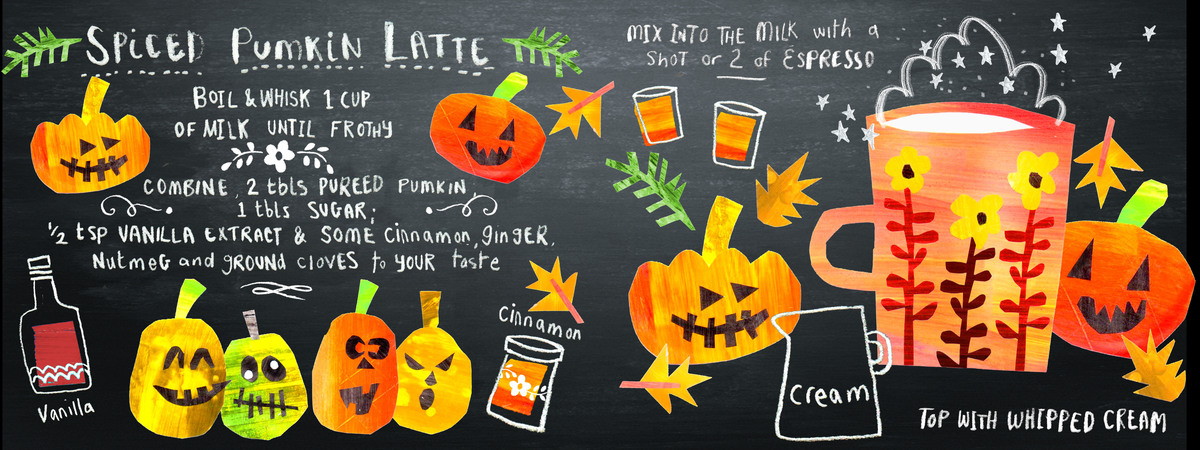 SPiCED PumKiN LATTE
BOIL & WHISK 1 CUP
OF MILK UNTIL FROTHY
COMBINE, 2 tbls PUREED PUMKIN,
1 tbls SUGAR,
1/2 tSP VANILLA EXTRACT & SOME Cinnamon, ginGER,
NutmeG and gROUND cLOVES to YOUR taste
Vanilla
Cinnamon
MIX INTO THE MILK with a
SHOT or 2 of ESPRESSO
Cream
TOP WITH WHIPPED CREAM